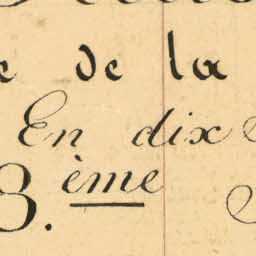 e de la
En dix
3.ème